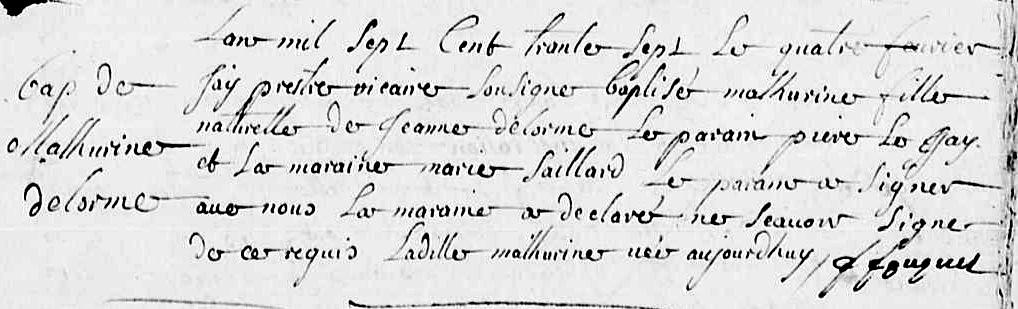 Lan mil sept cent trente sept le quatre feuvier
bap de
jay prestre vicaire sousigne baptisé mathurine fille
naturelle de jeanne delorme le parain piere le jay
Mathurine
et la maraine marie saillard le parain a signer
delorme
aue nous la maraine a declaré ne scauoir signe
de ce requis ladille mathurine née aujourdhuy ffouquet